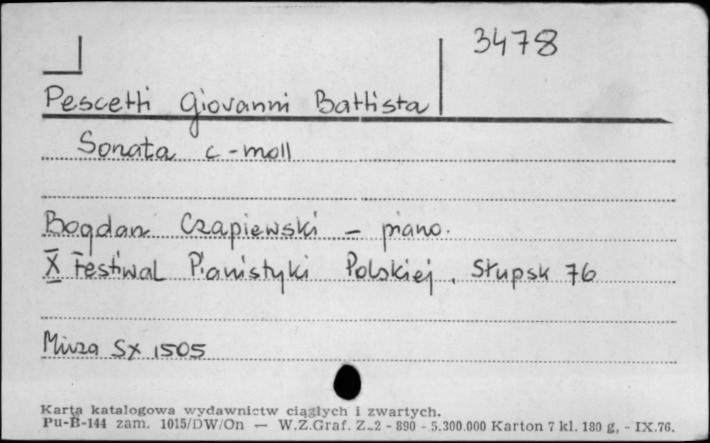 3478
Pescetti Giovanni Battista
Sonata c-moll
Bogdan Czapiewski - piano.
X Festiwal Pianistyki Polskiej. Słupsk 76
Muza SX 1505
Karta katalogowa wydawnictw ciągłych i zwartych.
Pu-B-144 zam. 1015/DW/On — W.Z.Graf. Z-2 - 890 - 5.300.000 Karton 7 kl. 180 g, - IX.76.